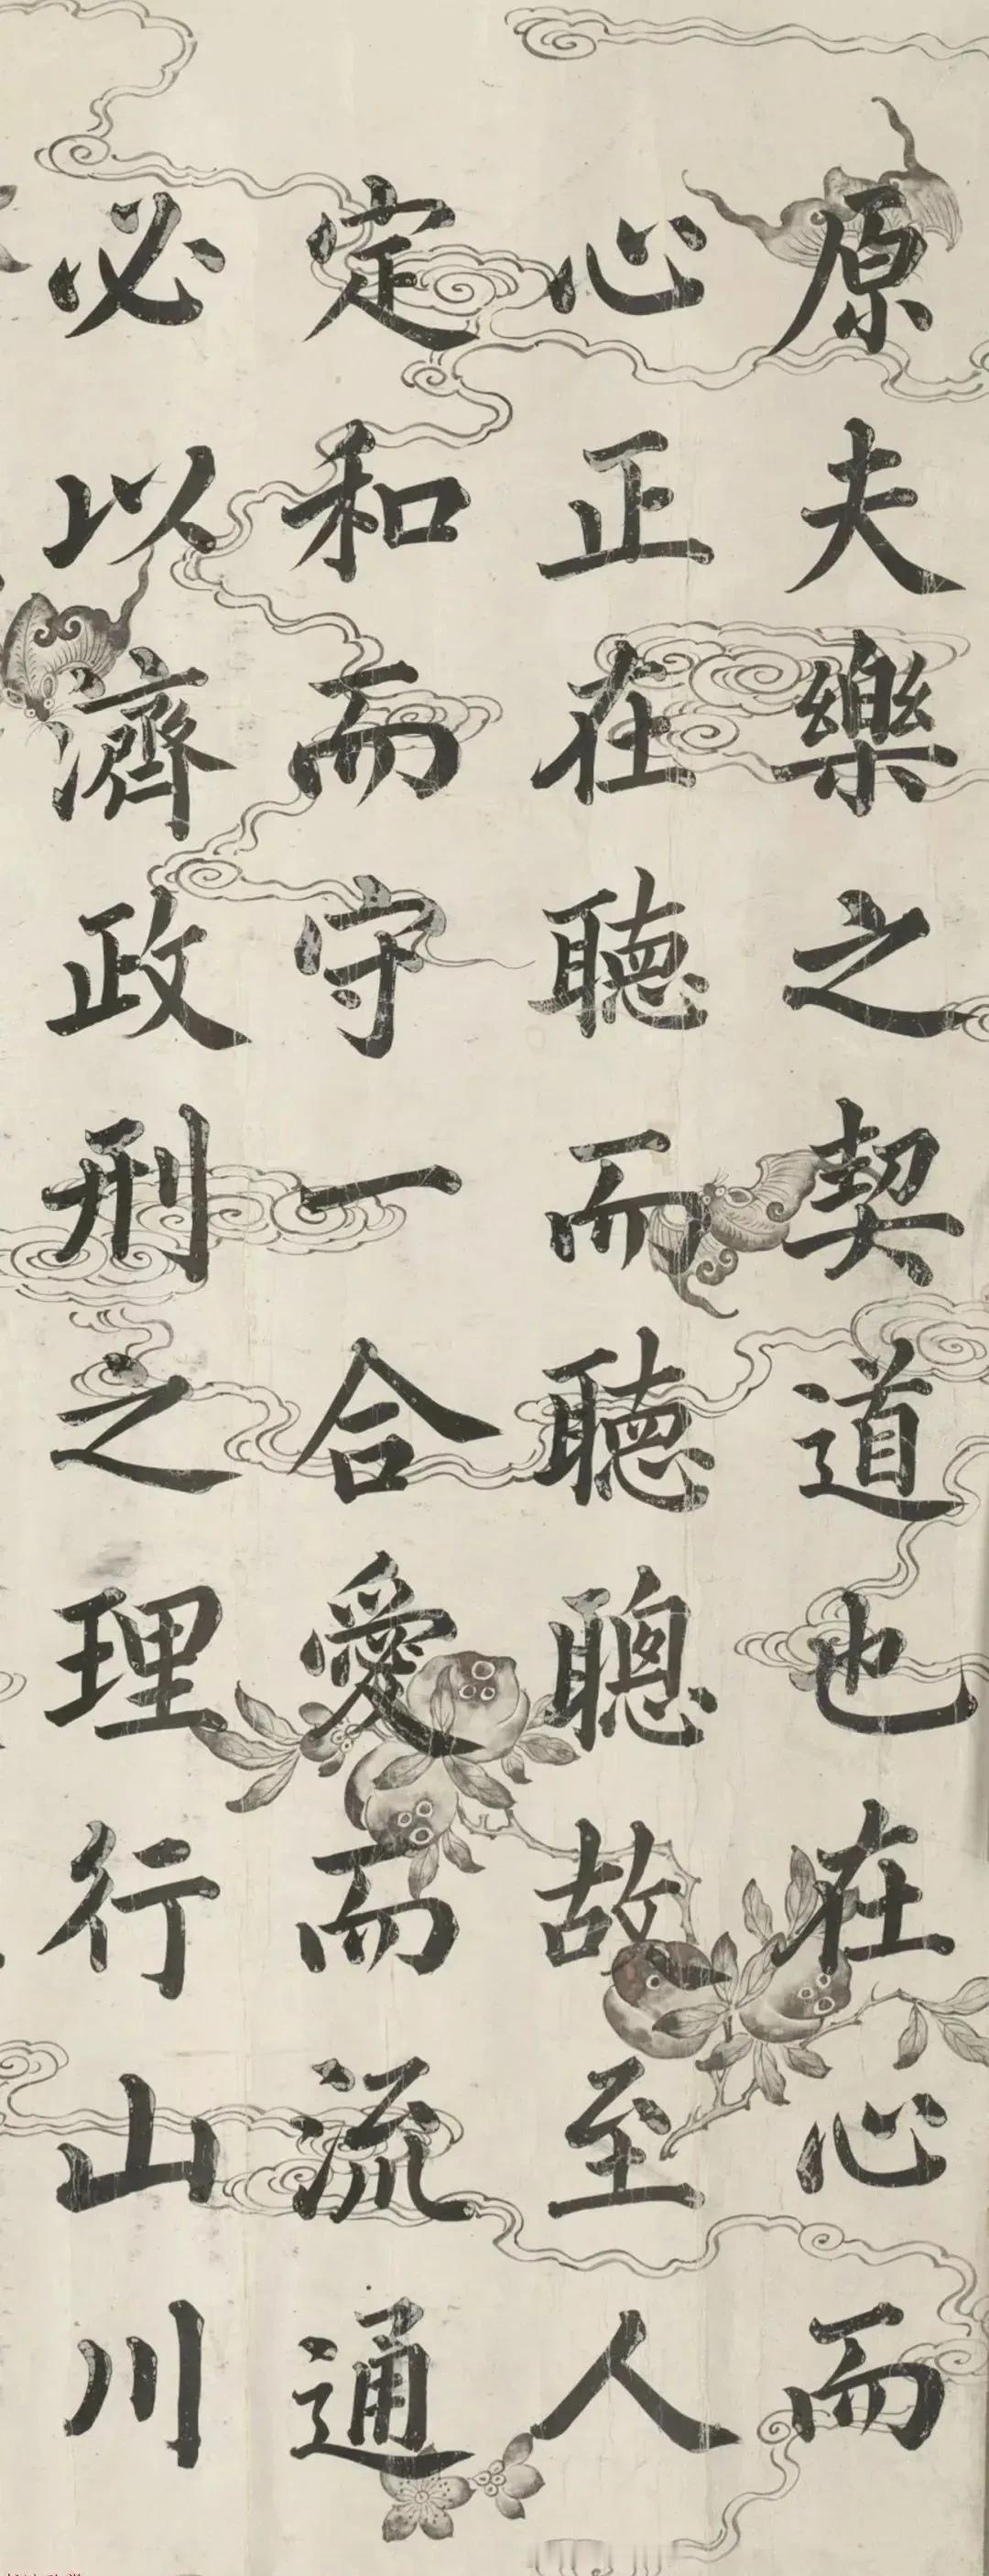 原夫樂之契道也在心而
心正在聽而聽聰故至人
定和而守一合愛而流通
必以濟政刑之理行山川